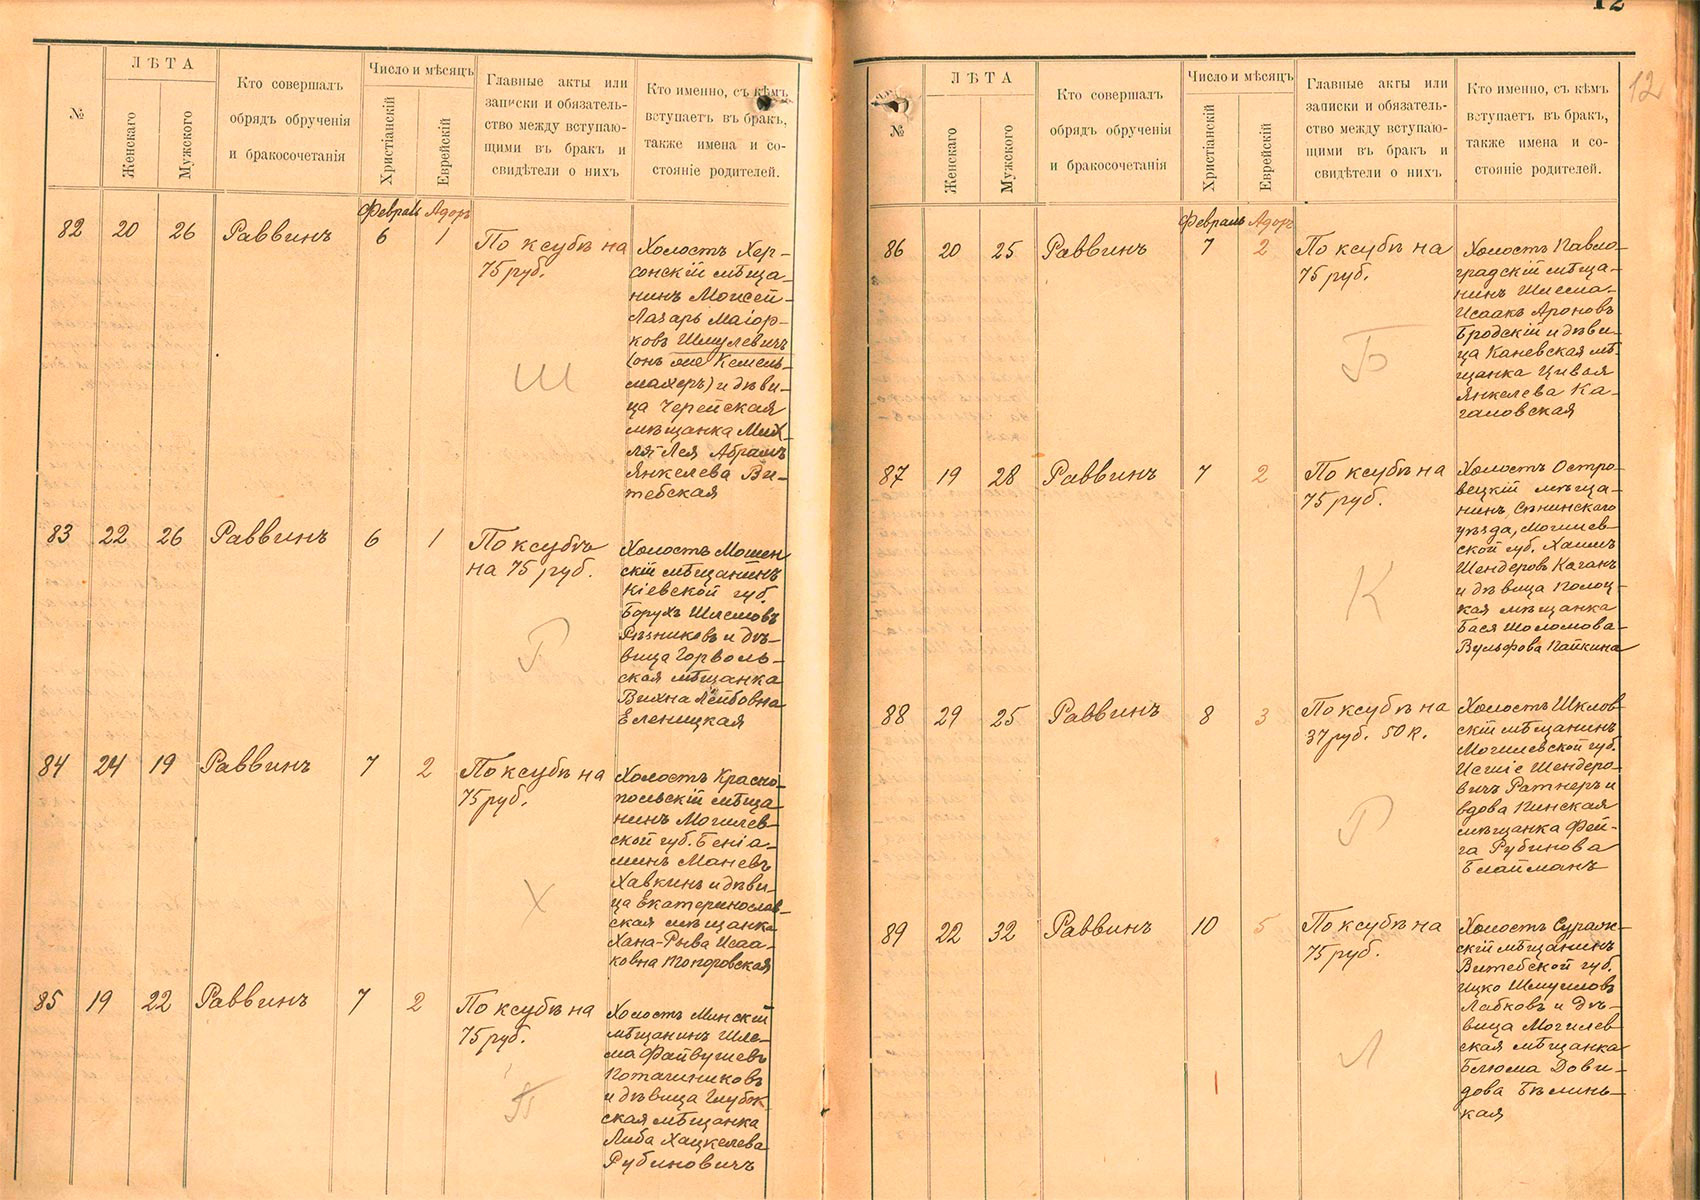 №
ЛѢТА
Женскаго
Мужского
Кто совершалъ
обрядъ обрученія
и бракосочетанія
Число и мѣсяцъ
Христіанскій
Еврейскій
Главные акты или
записки и обязатель-
ство между вступаю-
щими въ бракъ и
свидѣтели о нихъ
Кто именно, съ кѣмъ
вступаетъ въ бракъ,
также имена и со-
стояніе родителей.
Февраль Адоръ
82 20 26 Раввинъ 6 1
По ксубѣ на
75 руб.
Ш
Холостъ Хер-
сонскій мѣща-
нинъ Моисей-
Лазарь Маіор-
ковъ Шмулевичъ
(онъ же Кемель-
махеръ) и дѣви-
ца Черейская
мѣщанка Мих-
ля Лея Абрамъ
Янкелева Ви-
тебская
83 22 26 Раввинъ 6 1
По ксубѣ
на 75 руб.
Р
Холостъ Мошен
скій мѣщанинъ
Кіевской губ.
Борухъ Шлемовъ
Рѣзниковъ и дѣ-
вица Горволь-
ская мѣщанка
Вихна Лейбовна
Еленицкая
84 24 19 Раввинъ 7 2
По ксубѣ на
75 руб.
Х
Холостъ Красно-
польскій мѣща-
нинъ Могилев-
ской губ. Беніа-
минъ Маневъ
Хавкинъ и дѣви-
ца Екатеринослав-
ская мѣщанка
Хана-Рыва Исаа-
ковна Топоровская
85 19 22 Раввинъ 7 2
По ксубѣ на
75 руб.
П
Холостъ Минскій
мѣщанинъ Шле-
ма Файвушевъ
Поташниковъ
и дѣвица Глубок
ская мѣщанка
Либа Хацкелева
Рубиновичъ
12
12
№
ЛѢТА
Женскаго
Мужского
Кто совершалъ
обрядъ обрученія
и бракосочетанія
Число и мѣсяцъ
Христіанскій
Еврейскій
Главные акты или
записки и обязатель-
ство между вступаю-
щими въ бракъ и
свидѣтели о нихъ
Кто именно, съ кѣмъ
вступаетъ въ бракъ,
также имена и со-
стояніе родителей.
Февраль Адоръ
86 20 25 Раввинъ 7 2
По ксубѣ на
75 руб.
Б
Холостъ Павло-
градскій мѣща-
нинъ Шлема-
Исаакъ Ароновъ
Бродскій и дѣви-
ца Каневская мѣ-
щанка Цивья
Янкелева Ка-
гановская
87 19 28 Раввинъ 7 2
По ксубѣ на
75 руб.
К
Холостъ Остро-
вецкій мѣща-
нинъ, Сѣнинского
уѣзда, Могилев-
ской губ. Хаимъ
Шендеровъ Каганъ
и дѣвица Полоц-
кая мѣщанка
Бася Шоломова-
Вульфова Пайкина
88 29 25 Раввинъ 8 3
По ксубѣ на
37 руб. 50 к.
Р
Холостъ Шклов-
скій мѣщанинъ
Могилевской губ.
Шендеро-
вичъ Ратнеръ и
вдова Пинская
мѣщанка Фей-
га Рубинова
Блайманъ
89 22 32 Раввинъ 10 5
По ксубѣ на
75 руб.
Л
Холостъ Сураж-
скій мѣщанинъ
Витебской губ.
Ицко Шмуиловъ
Лабковъ и дѣ-
вица Могилев-
ская мѣщанка
Блюма Дови-
дова Бѣлинь-
кая